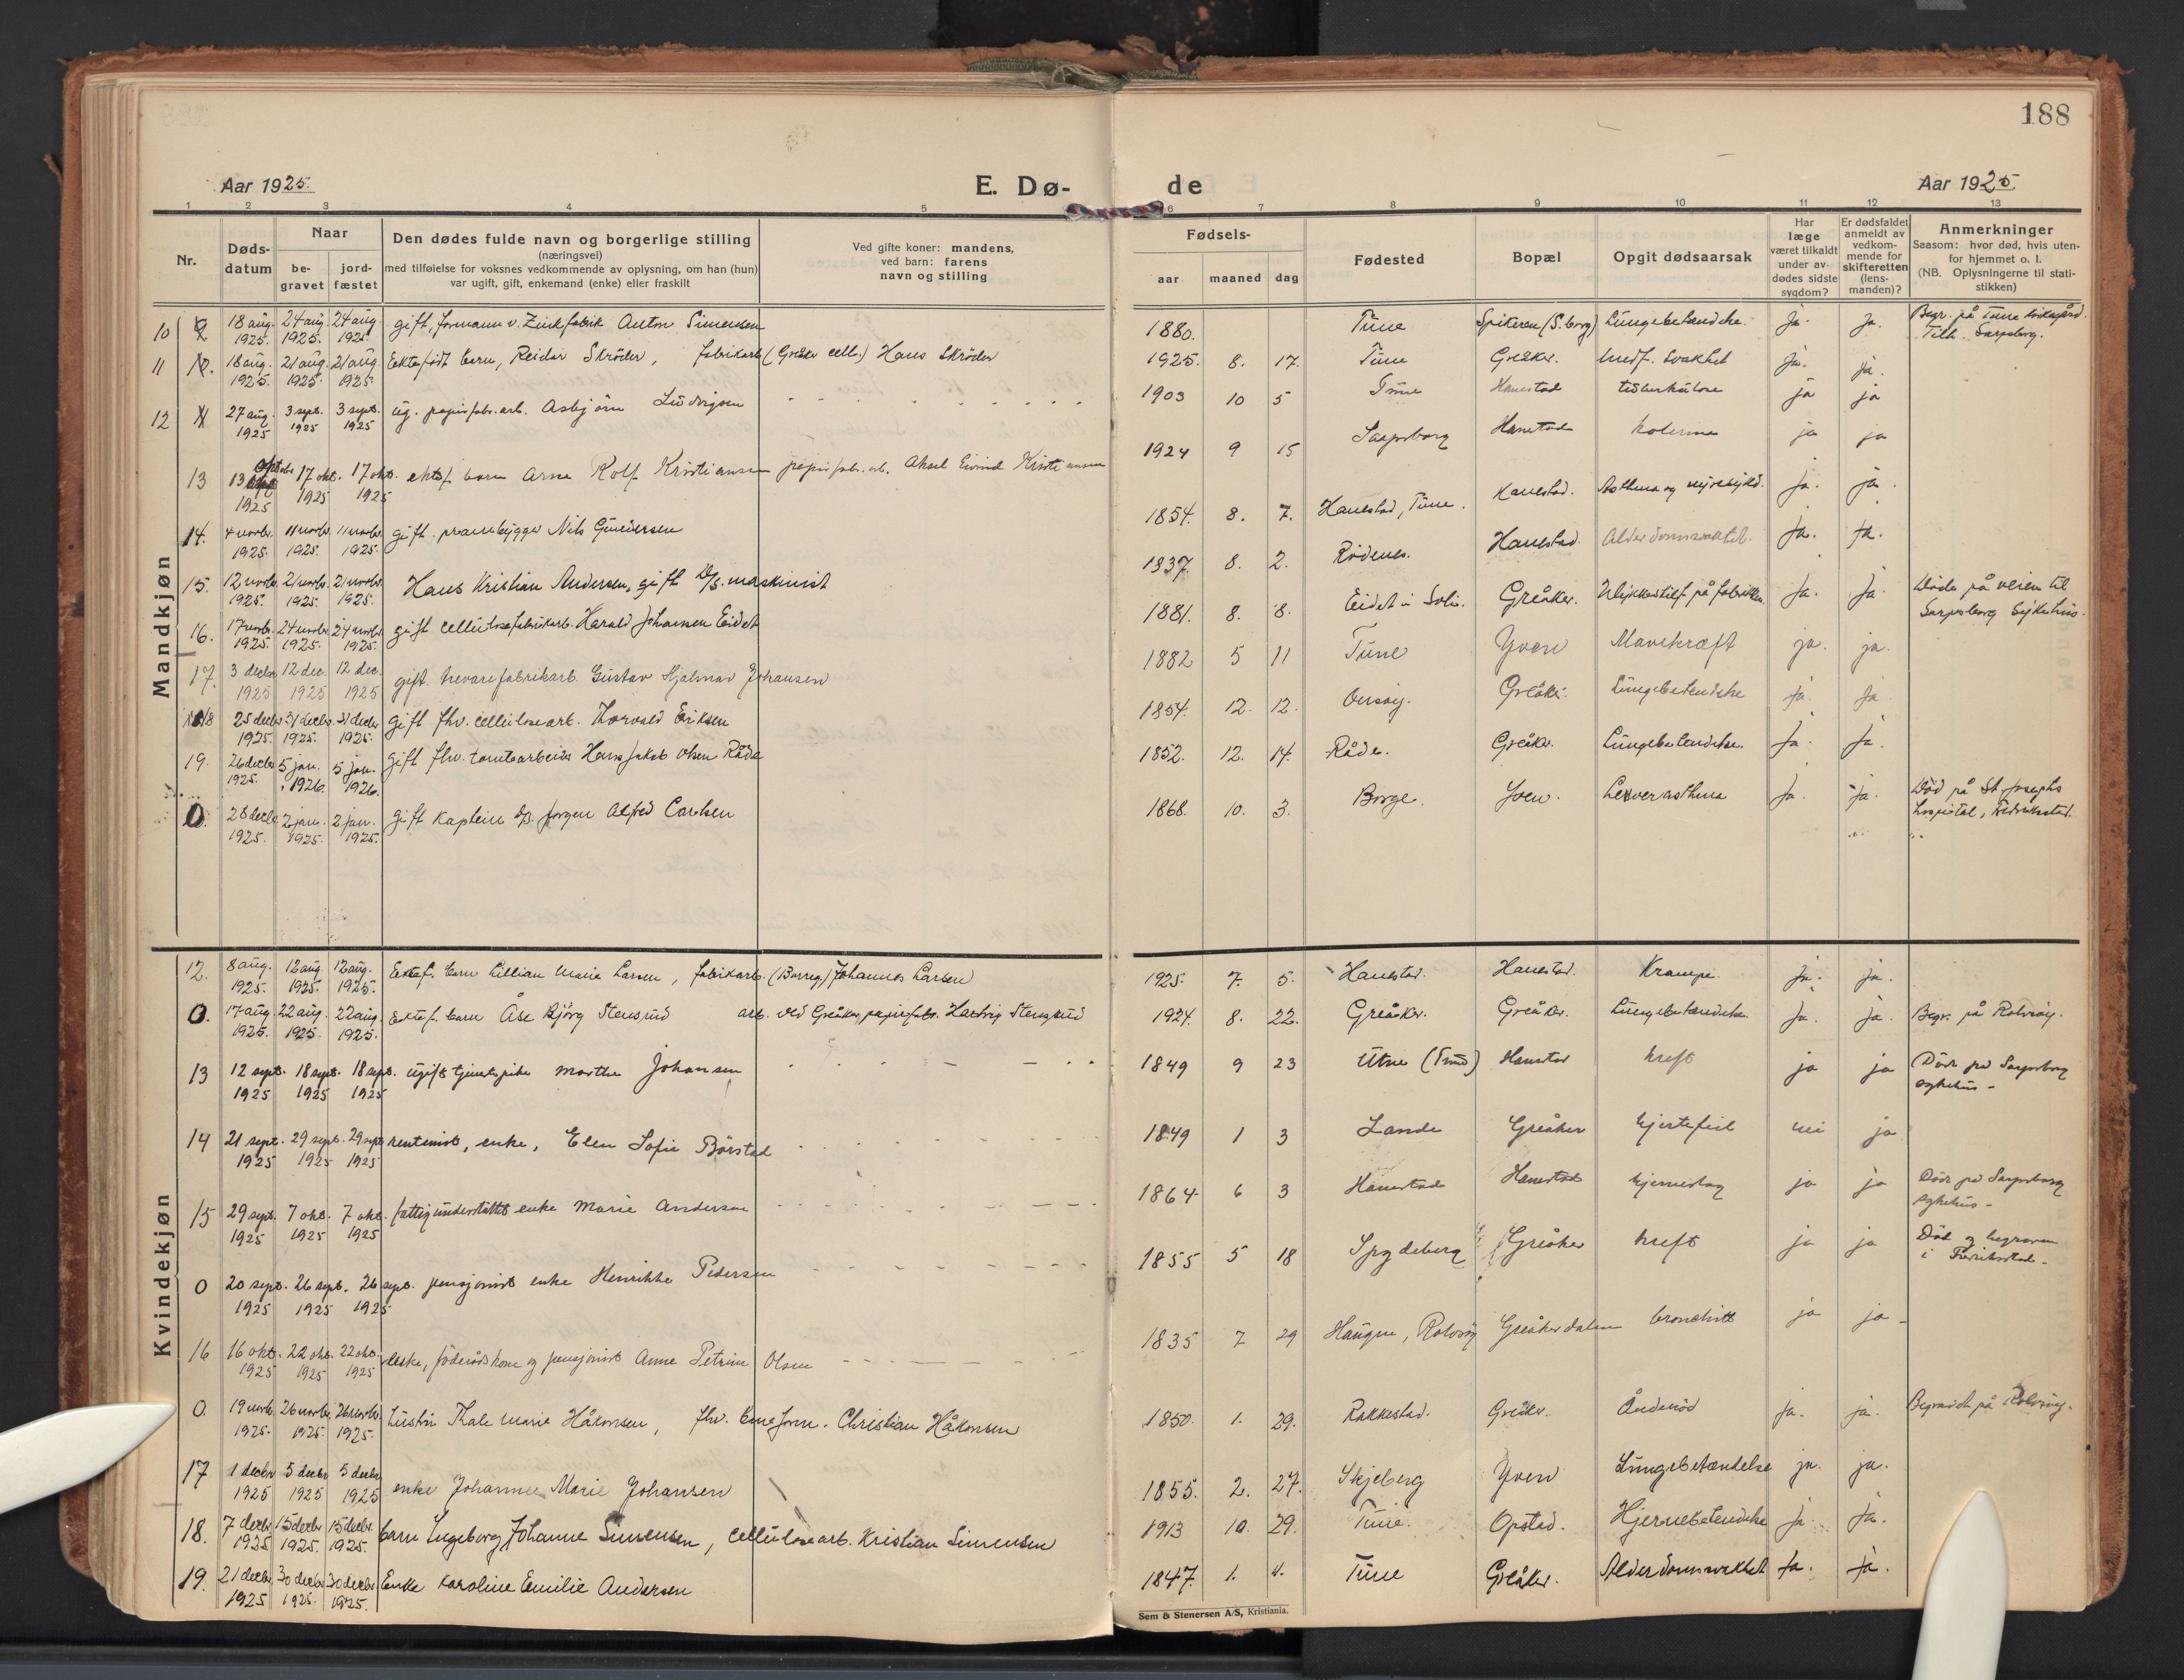 188
Aar 1925.
E. Dø-
de
Aar 1925.
1 2 3 4 5 6 7 8 9 10 11 12 13
Nr.
Døds-
datum
Naar
be-
gravet
jord-
fæstet
Den dødes fulde navn og borgerlige stilling
(næringsvei)
med tilføielse for voksnes vedkommende av oplysning, om han (hun)
var ugift, gift, enkemand (enke) eller fraskilt
Ved gifte koner: mandens,
ved barn: farens
navn og stilling
Fødsels-
aar maaned dag
Fødested
Bopæl
Opgit dødsaarsak
Har
læge
været tilkaldt
under av-
dødes sidste
sygdom?
Er dødsfaldet
anmeldt av
vedkom-
mende for
skifteretten
(lens-
manden)?
Anmerkninger
Saasom: hvor død, hvis uten-
for hjemmet o. l.
(NB. Oplysningerne til stati-
stikken)
Mandkjøn
10 18 aug. 1925. 24 aug. 1925. 24 aug. 1925. gift, formann v. Zinkfabrik Anton Simensen 1880. Tune Spikeren (S.borg) Lungebetændelse. Ja. Ja. Begr. på Tune
Sarpsborg.
11 18 aug. 1925. 21 aug. 1925 21 aug. 1925. Ektefødt barn, Reidar Ströder, fabrikarb. (Greåker cell.) Hans Ströder 1925. 8. 17. Tune Greåker. Medf. svakhet Ja. Ja.
12 27 aug. 1925 3 sept. 1925 3 sept. 1925 ug. papirfabr.arb. Asbjörn Ludvigsen 1903 10 5 Tune Hanestad tuberkulose ja ja
13 13 oktober 1925 17 okt. 1925 17 okt. 1925 ektef. barn Arne Rolf Kristiansen papirfabr.arb. Aksel Eivind Kristiansen 1924 9 15 Sarpsborg Hanestad kolerine ja ja
14. 4 novbr. 1925. 11 novbr. 1925. 11 novbr. 1925. gift. prammebygger Nils Gundersen 1854. 8. 7. Hanestad, Tune. Hanestad. Asthma og nyresykd. Ja. ja.
15. 12 novbr. 1925. 21 novbr. 1925. 21 novbr. 1925. Hans Kristian Andersen, gift D/S. maskinist 1837. 8. 2. Rödenes. Hanestad. Alderdomssvakhet. Ja. Ja.
16. 17 novb. 1925. 24 novbr. 1925. 24 novbr. 1925. gift cellulosefabrikarb. Harald Johansen Eidet 1881. 8. 8. Eidet i Soli. Greåker. Ulykkestilf. på fabrikken. Ja. Ja. Döde på veien til
Sarpsborg sykehus.
17. 3 decbr 1925 12 dec. 1925 12 dec. 1925 gift. trevarefabrikarb. Gustav Hjalmar Johansen 1882 5 11 Tune Yven Mavekræft ja. ja.
18 25 decbr 1925. 31 decbr. 1925. 31 decbr 1925. gift fhv. cellulosearb. Thorvald Eriksen 1854. 12. 12. Onsøy. Greåker. Lungebetendelse Ja. Ja
19. 26 decbr 1925. 5 jan. 1926. 5 jan. 1926. gift fhv. tomtearbeider Hans Jakob Olsen Råde 1852. 12. 14. Råde. Greåker. Lungebetendelse. Ja. Ja.
0. 28 decbr 1925. 2 jan. 1925. 2 jan. 1925. gift Kaptein d/s. Jørgen Alfred Carlsen 1868. 10. 3. Borge. Yven. Ja. Ja. Död på St. Josephs
hospital, Fredrikstad.
Kvindekjøn
12. 8 aug. 1925. 12 aug. 1925. 12 aug. 1925. Ektef. barn Lillian Marie Larsen, fabrikarb. (Borreg.) Johannes Larsen 1925. 7. 5. Hanestad. Hanestad. Krampe. Ja. ja.
0. 17 aug. 1925. 22 aug. 1925. 22 aug. 1925. Ektef. barn Åse Björg Stensrud arb. ved Greåker papirfabr. Hartvig Stensrud 1924. 8. 22. Greåker. Greåker. Lungebetændelse Ja. ja. Begr. på Rolvsøy.
13 12 sept. 1925 18 sept. 1925 18 sept. 1925 ugift tjenestepike Marthe Johansen 1849 9 23 Utne (Tune) Hanestad kreft ja ja Döde på Sarpsborg
sykehus -
14 21 sept. 1925 29 sept. 1925 29 sept 1925 rentenist, enke, Elen Sofie Börstad 1849 1 3 Lande Greåker hjertefeil nei ja
15 29 sept. 1925 7 okt. 1925 7 okt. 1925 fattigunderstöttet enke Marie Andersen 1864 6 3 Hanestad Hanestad hjerneslag ja ja Döde på Sarpsborg
sykehus -
0 20 sept. 1925 26 sept. 1925 26 sept. 1925 pensjonist enke Henrikke Pedersen 1855 5 18 Spydeberg Greåker kreft ja ja Död og begraven
i Fredrikstad -
16 16 okt. 1925 22 okt. 1925 22 okt. 1925 enke, föderådskone og pensjonist Anne Petrine Olsen 1835 7 29 Haugen, Rolvsöy Greåkerdalen bronchitt ja ja -
0. 19 novb. 1925. 26 novbr. 1925 26 novbr. 1925. hustru Thale Marie Håkonsen, fhv. Christian Håkonsen 1850. 1. 29. Rakkestad. Greåker. Åndenöd ja. ja. Begravet på Rolvsöy.
17 1 decbr 1925 5 decbr 1925 5 decbr 1925 enke Johanne Marie Johansen 1855. 2. 27. Skjeberg Yven Lungebetændelse ja. ja.
18. 7 decbr. 1925 15 decbr 1925. 15 decbr. 1925. barn Ingeborg Johanne Simensen, cellulosearb. Kristian Simensen 1913 10. 29. Tune. Opstad. Hjernebetendelse Ja. Ja.
19. 21 decbr. 1925 30 decbr 1925. 30 decbr. 1925. Enke Karoline Emilie Andersen 1847. 1. 4. Tune Greåker. Alderdomssvakhet Ja. Ja.
Sem & Stenersen A/S, Kristiania.